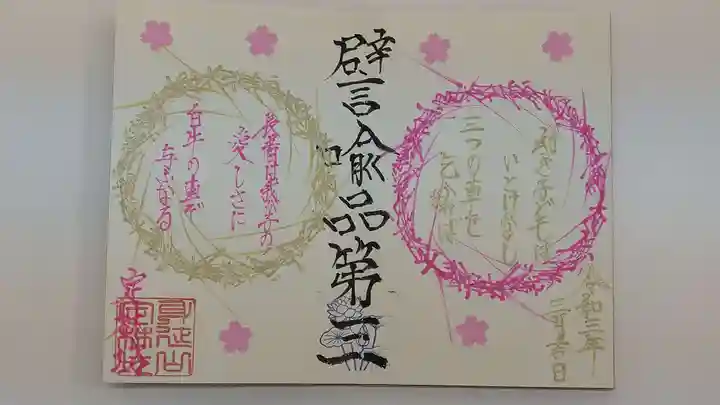 幼き子どもは
いとけなし
三つの車を
乞ふなれば
令和三年
譬喩品第三
長者は我が子の
愛しさに
白牛の車ぞ
与ふなる
定林坊
身延山